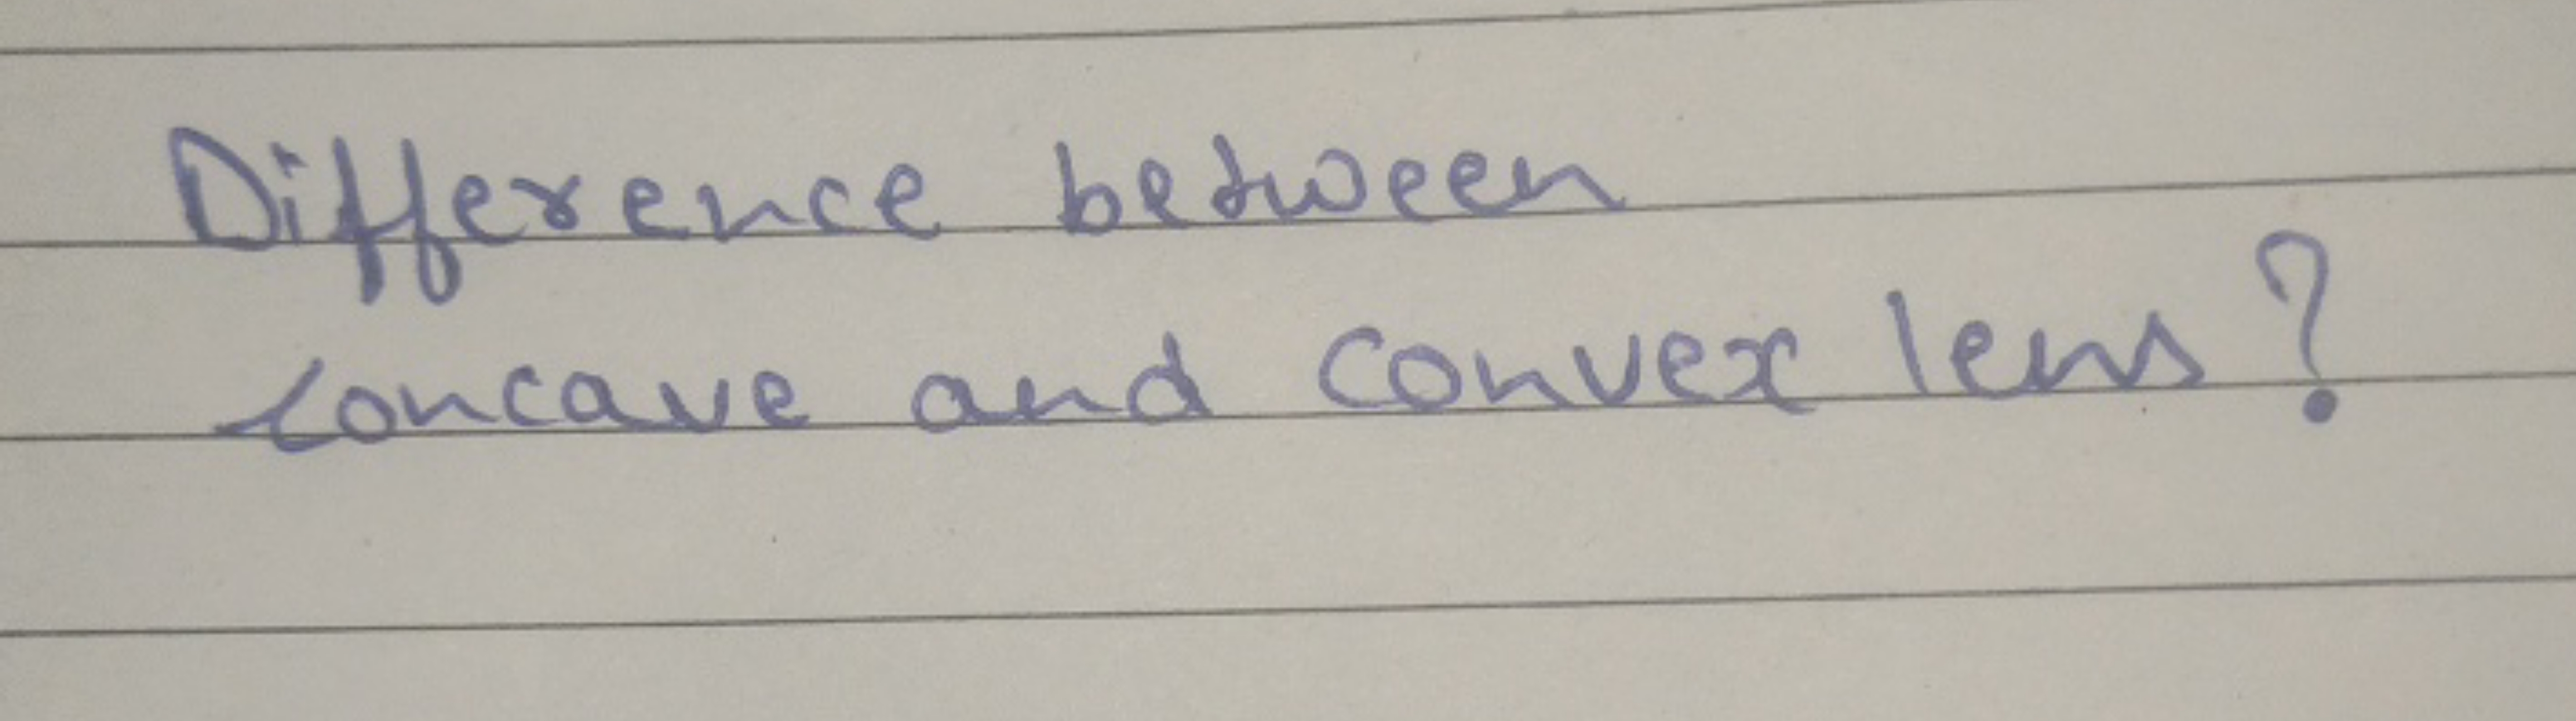 Difference between
concave and convex lens?